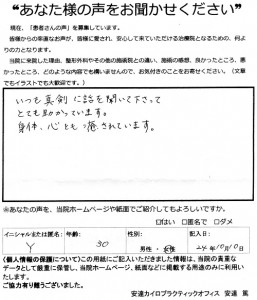 “あなた様の声をお聞かせください”
現在、「患者さんの声」を募集しています。
皆様からの率直なお声が、皆様に愛され、安心して来ていただける治療院となるための、何よりの力となります。
当院に来院した理由、整形外科やその他の施術院との違い、施術の感想、良かったところ、悪かったところ、どのような内容でも構いませんので、お気付きのことをお寄せください。（文章でもイラストでも大歓迎です。）
いつも真剣に話を聞いて下さって
とても助かっています。
身体、心ともに癒されています。
※あなたの声を、当院ホームページや紙面でご紹介してもよろしいですか。
□はい □匿名で □ダメ
イニシャルまたは匿名： 年齢： 性別： 記入日：
Y 30 男性・女性 24年10月10日
〈個人情報の保護について〉この用紙にご記入いただきました情報は、当院の貴重な
データとして厳重に保管し、当院ホームページ、紙面などに掲載する用途のみに利用い
たします。
ご協力有り難うございました。
安達カイロプラクティックオフィス 安達 篤